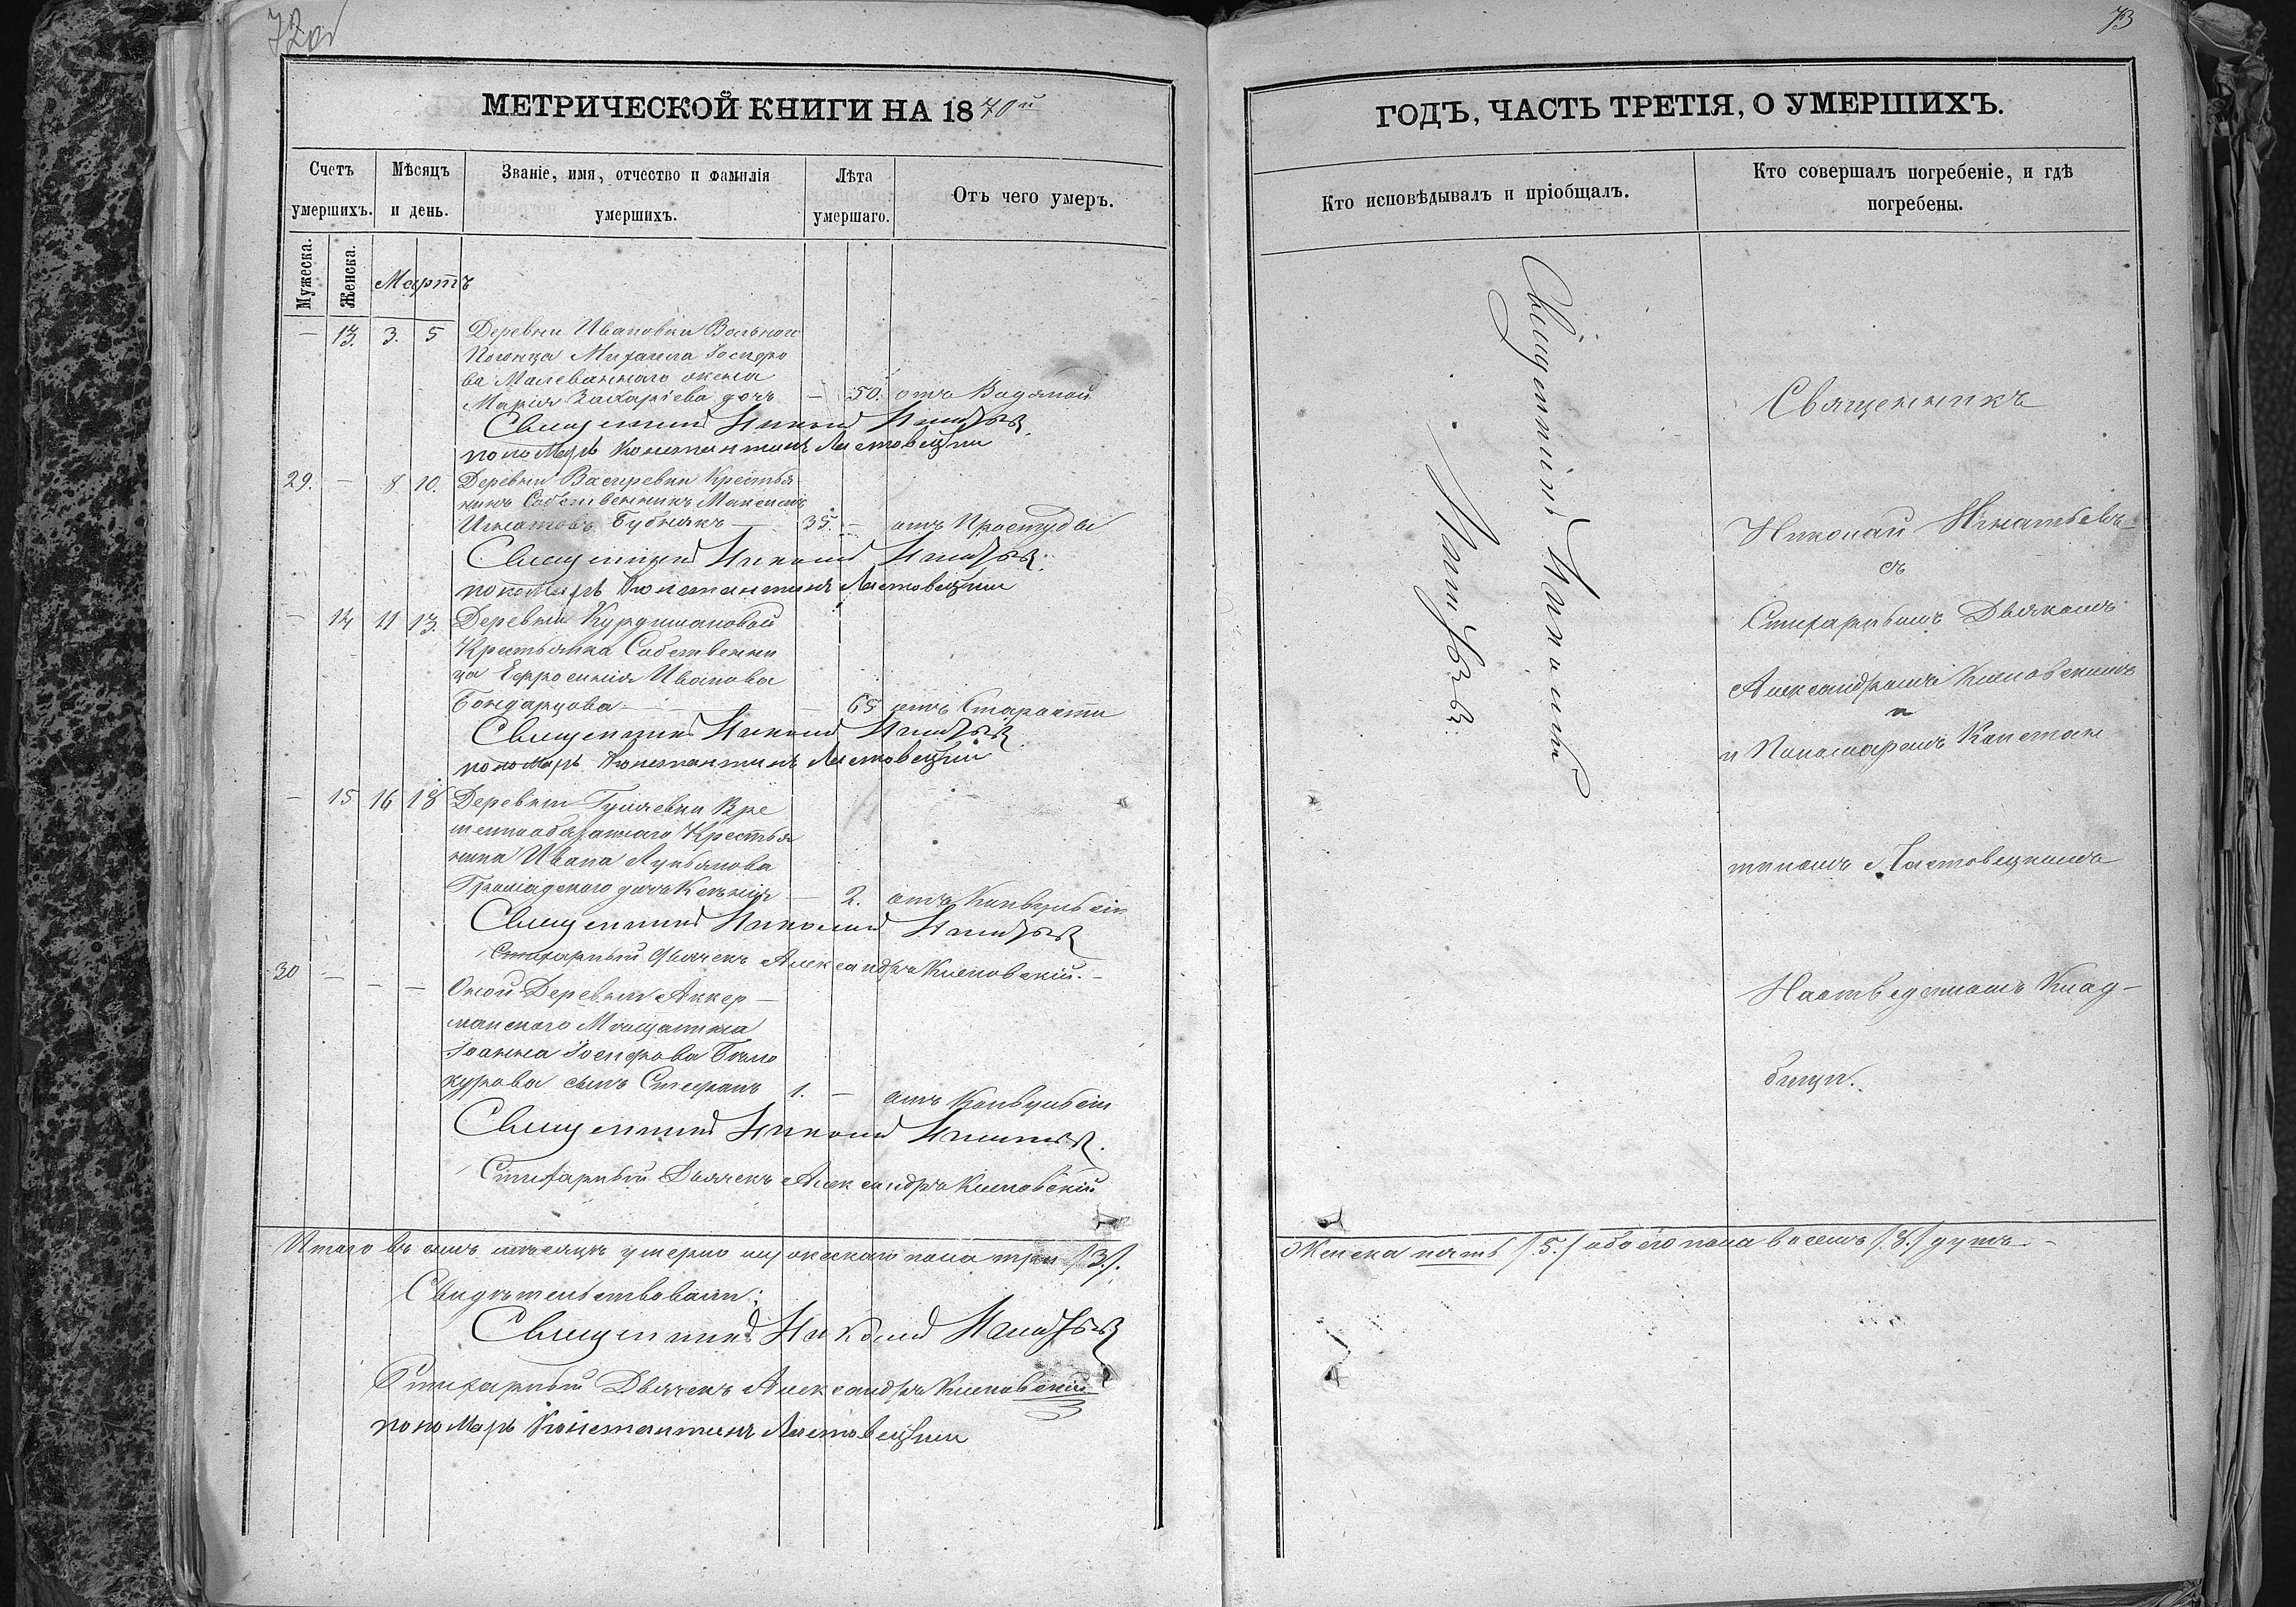 72об
МЕТРИЧЕСКОЙ КНИГИ НА 1870й
Счетъ умершихъ.
Мужеска.
Женска.
Мѣсяцъ и день.
Званіе, имя, отчество и фамилія умершихъ.
Лѣта умершаго.
Отъ чего умеръ.
Мартъ
— 13. 3. 5 Деревни Ивановки Вольнаго
Михаила Іосифо
ва Малеваннаго жена
Марія Захаріева дочь — 50. отъ Водяной
Священникъ Николай Игнатьевъ
пономарь Константинъ Ластовецкій
29. — 8 10. Деревни Крестья
нинъ Собственникъ Максимъ
Игнатовъ Бубнякъ — 35. — отъ Простуды
Священникъ Николай Игнатьевъ
пономарь Константинъ Ластовецкій
— 14 11 13. Деревни
Крестьянка Собственни
ца Евфросинія Иванова
Бондарцова — — 65 отъ Старости
Священникъ Николай Игнатьевъ
пономарь Константинъ Ластовецкій
— 15 16 18 Деревни Гуляевки Вре
меннообязаннаго Крестья
нина Ивана Лукьянова
Громадскаго дочь Ксенія — 2. отъ Конвульсіи
Священникъ Николай Игнатьевъ
Стихарный Дьячекъ Александръ
30 — — — Оной Деревни Аккер—
манскаго Мѣщанина
Іоанна Іосифова Бѣло
курова сынъ Стефанъ 1. — отъ Конвульсіи
Священникъ Николай Игнатьевъ.
Стихарный Дьячекъ Александръ
Итого въ семъ мѣсяцѣ умерло мужескаго пола три /3./.
Свидѣтельствовали:
Священникъ Николай Игнатьевъ
Стихарный Дьячекъ Александръ
пономарь Константинъ Ластовецкій
73
ГОДЪ, ЧАСТЬ ТРЕТІЯ, О УМЕРШИХЪ.
Кто исповѣдывалъ и пріобщалъ.
Кто совершалъ погребеніе, и гдѣ погребены.
Священникъ Николай
Игнатьевъ.
Священникъ
Николай Игнатьевъ
съ
Стихарнымъ Дьячкомъ
Александромъ
и
и Пономаремъ Констан
тиномъ Ластовецкимъ
На отведенномъ Клад—
бищѣ.
Женска пять /5./ обоего пола восемь /8./ душъ.—